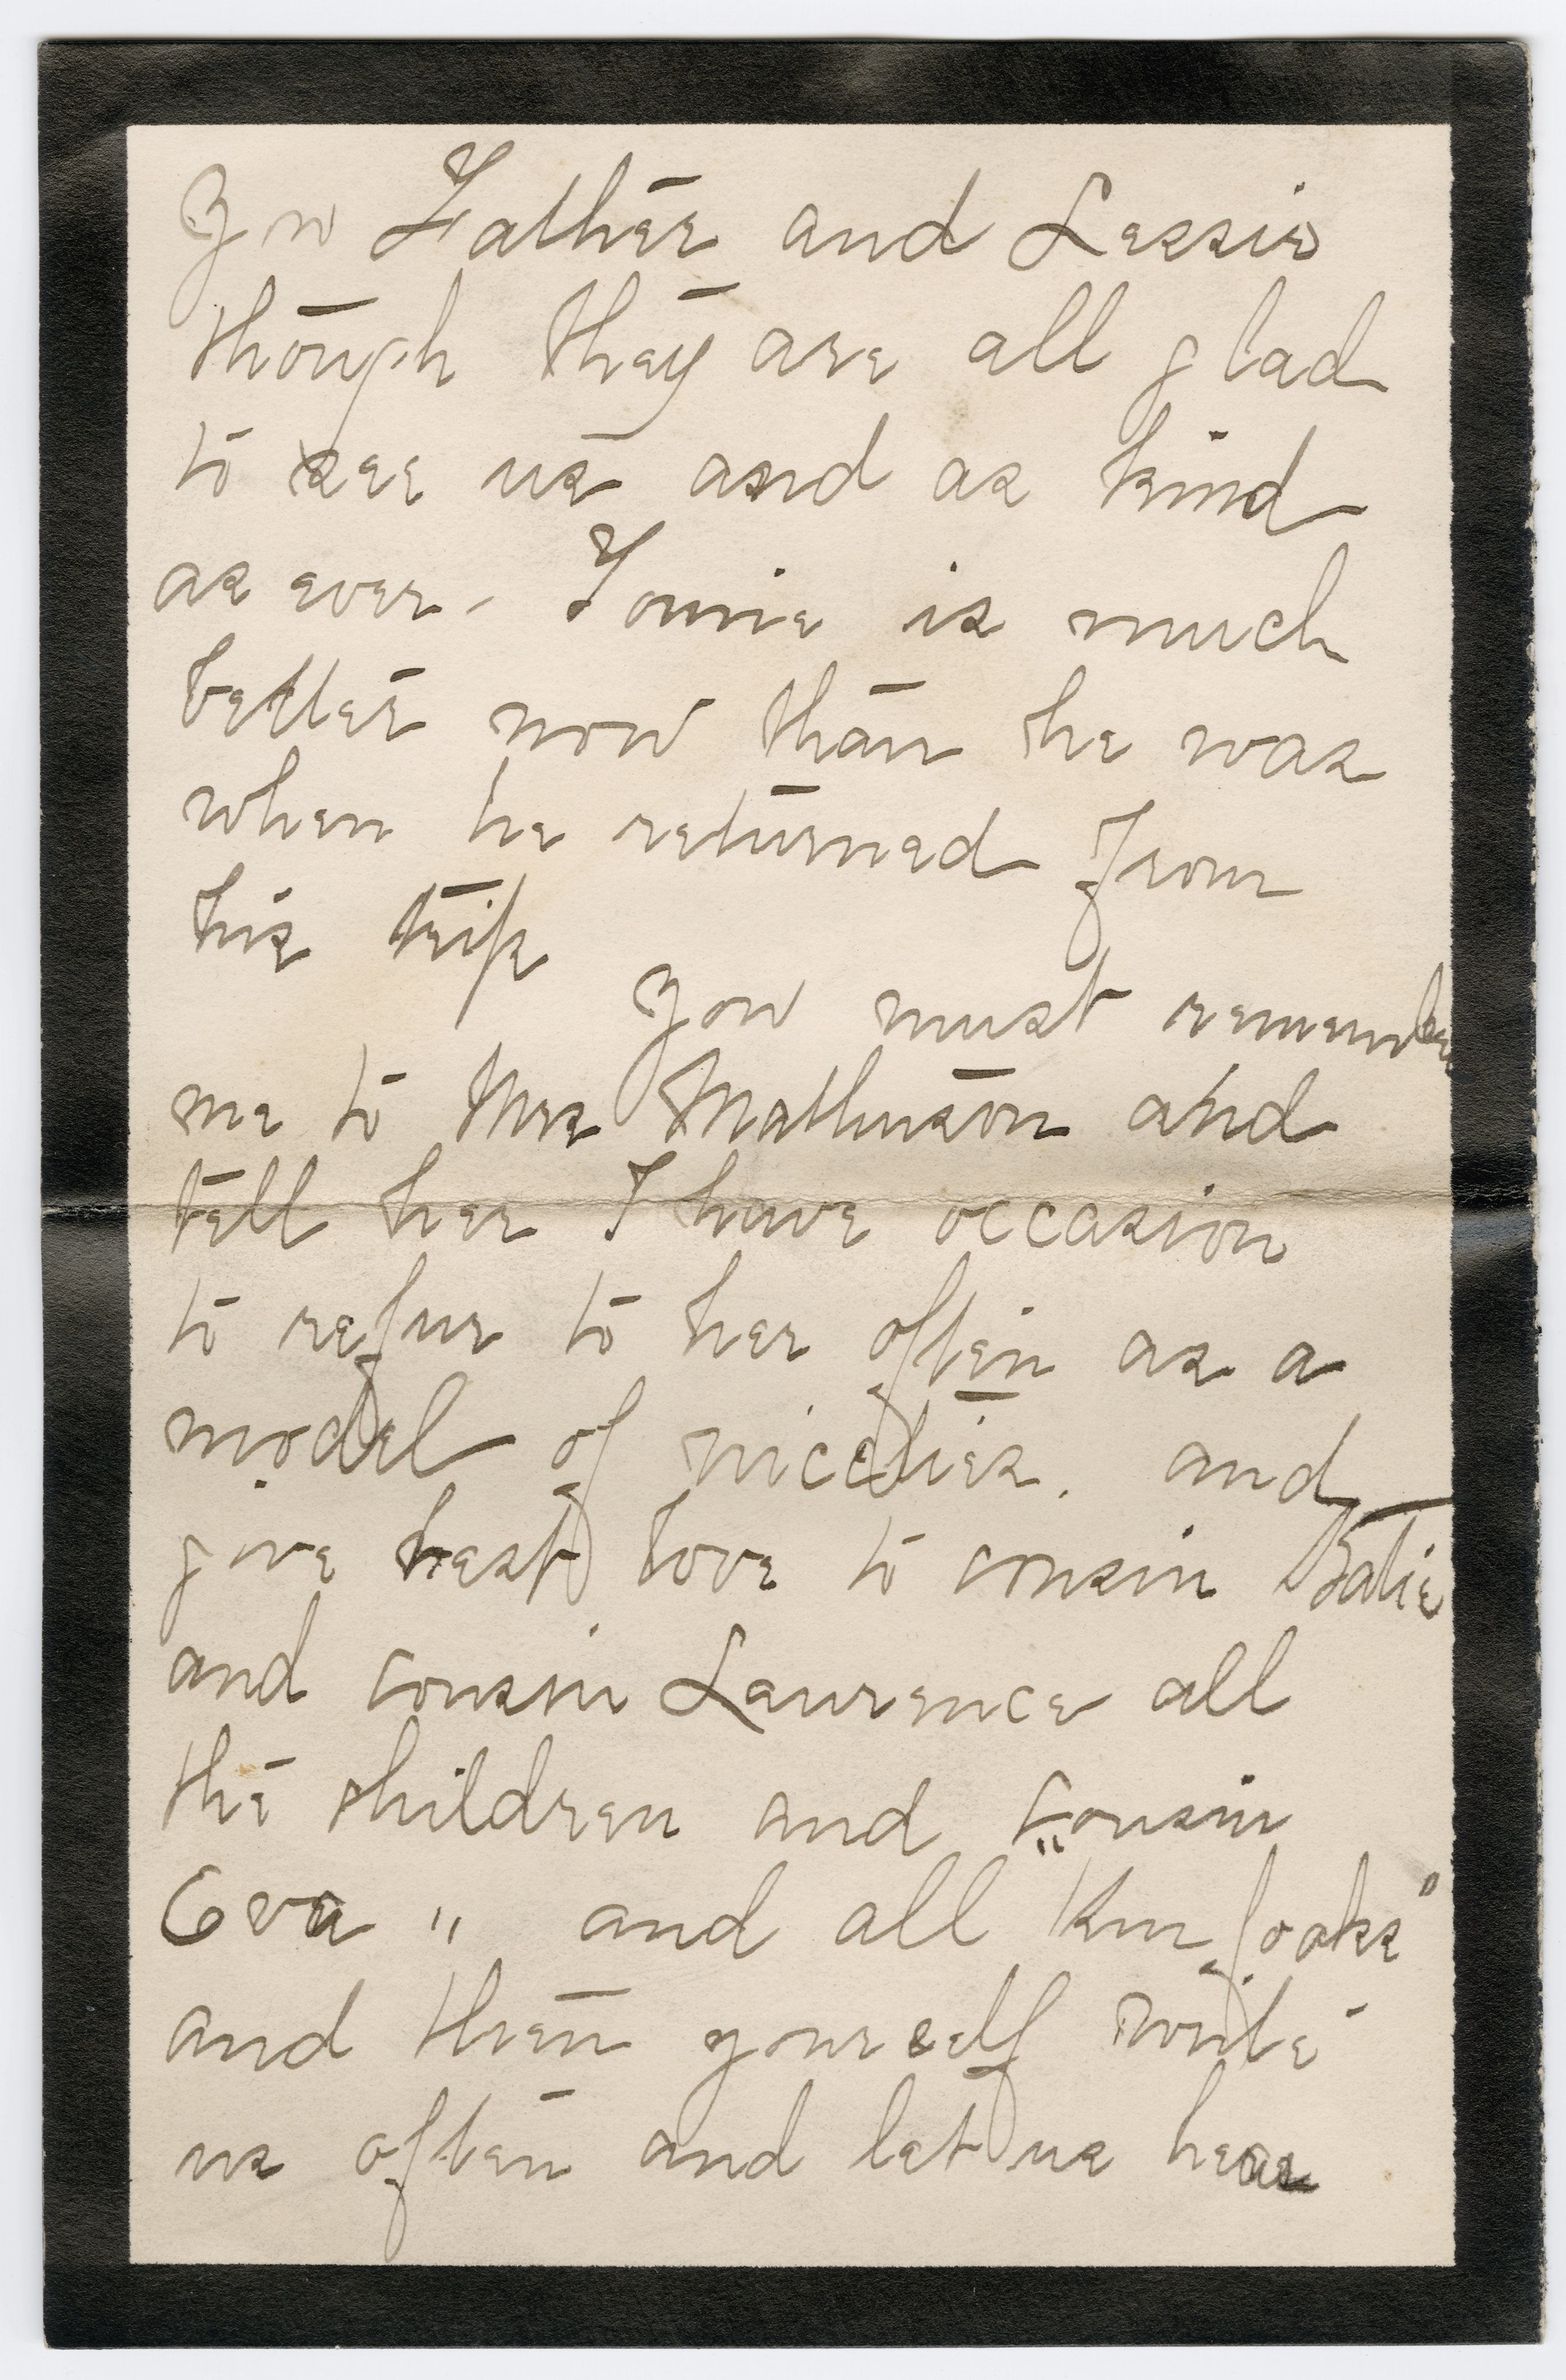 You Father and Lessie
though they are all glad
to see us and as kind
as ever. Tomie is much
better now than he was
when he returned from
his trip
You must remember
me to Mrs Mathuson and
tell her I have occasion
to refur to her often as a
model of niceties. and
give best love to cousin
and cousin Laurence all
the children and "cousin
Eva" and all Kinfoaks"
and then yourself write
us often and let us hear